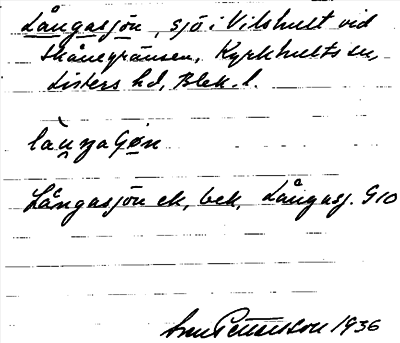 Långasjön, sjö i Vilshult vid
Skånegränsen, Kyrkhults sn,
Listers hd, Blek. l.
Långasjön ek, bek, Långasj. G10
Pettersson 1936